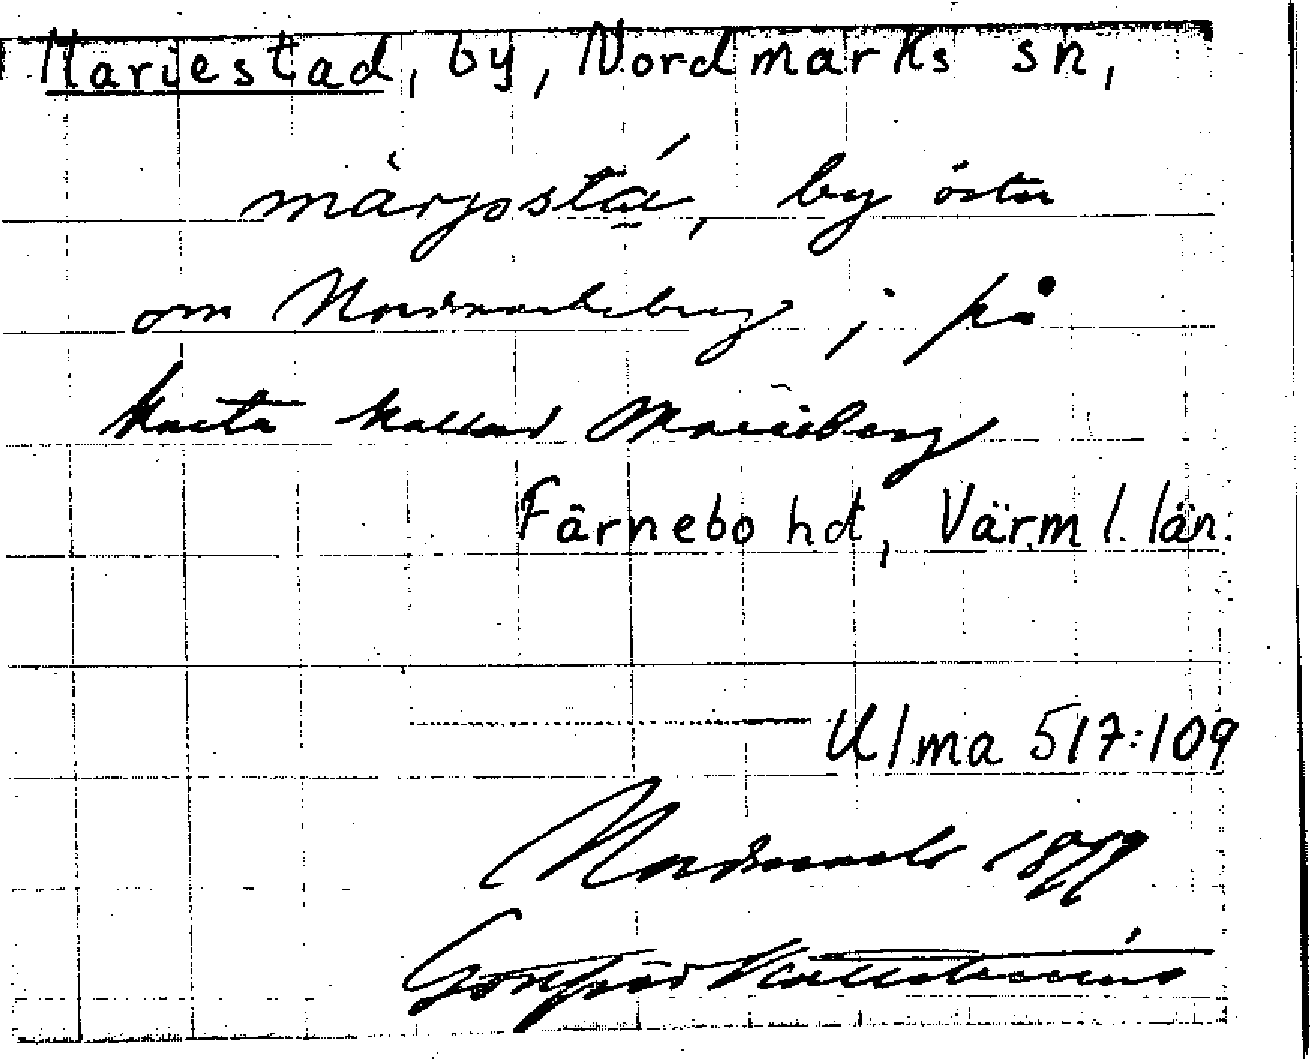 Mariestad, by, Nordmarks sn,
màrjostá, by öster
om Nordmarksberg, på
karta kallad Marieberg
Färnebo hd, Värml. län.
Ulma 517:109
Nordmark 1879
Gottfrid Kallstenius